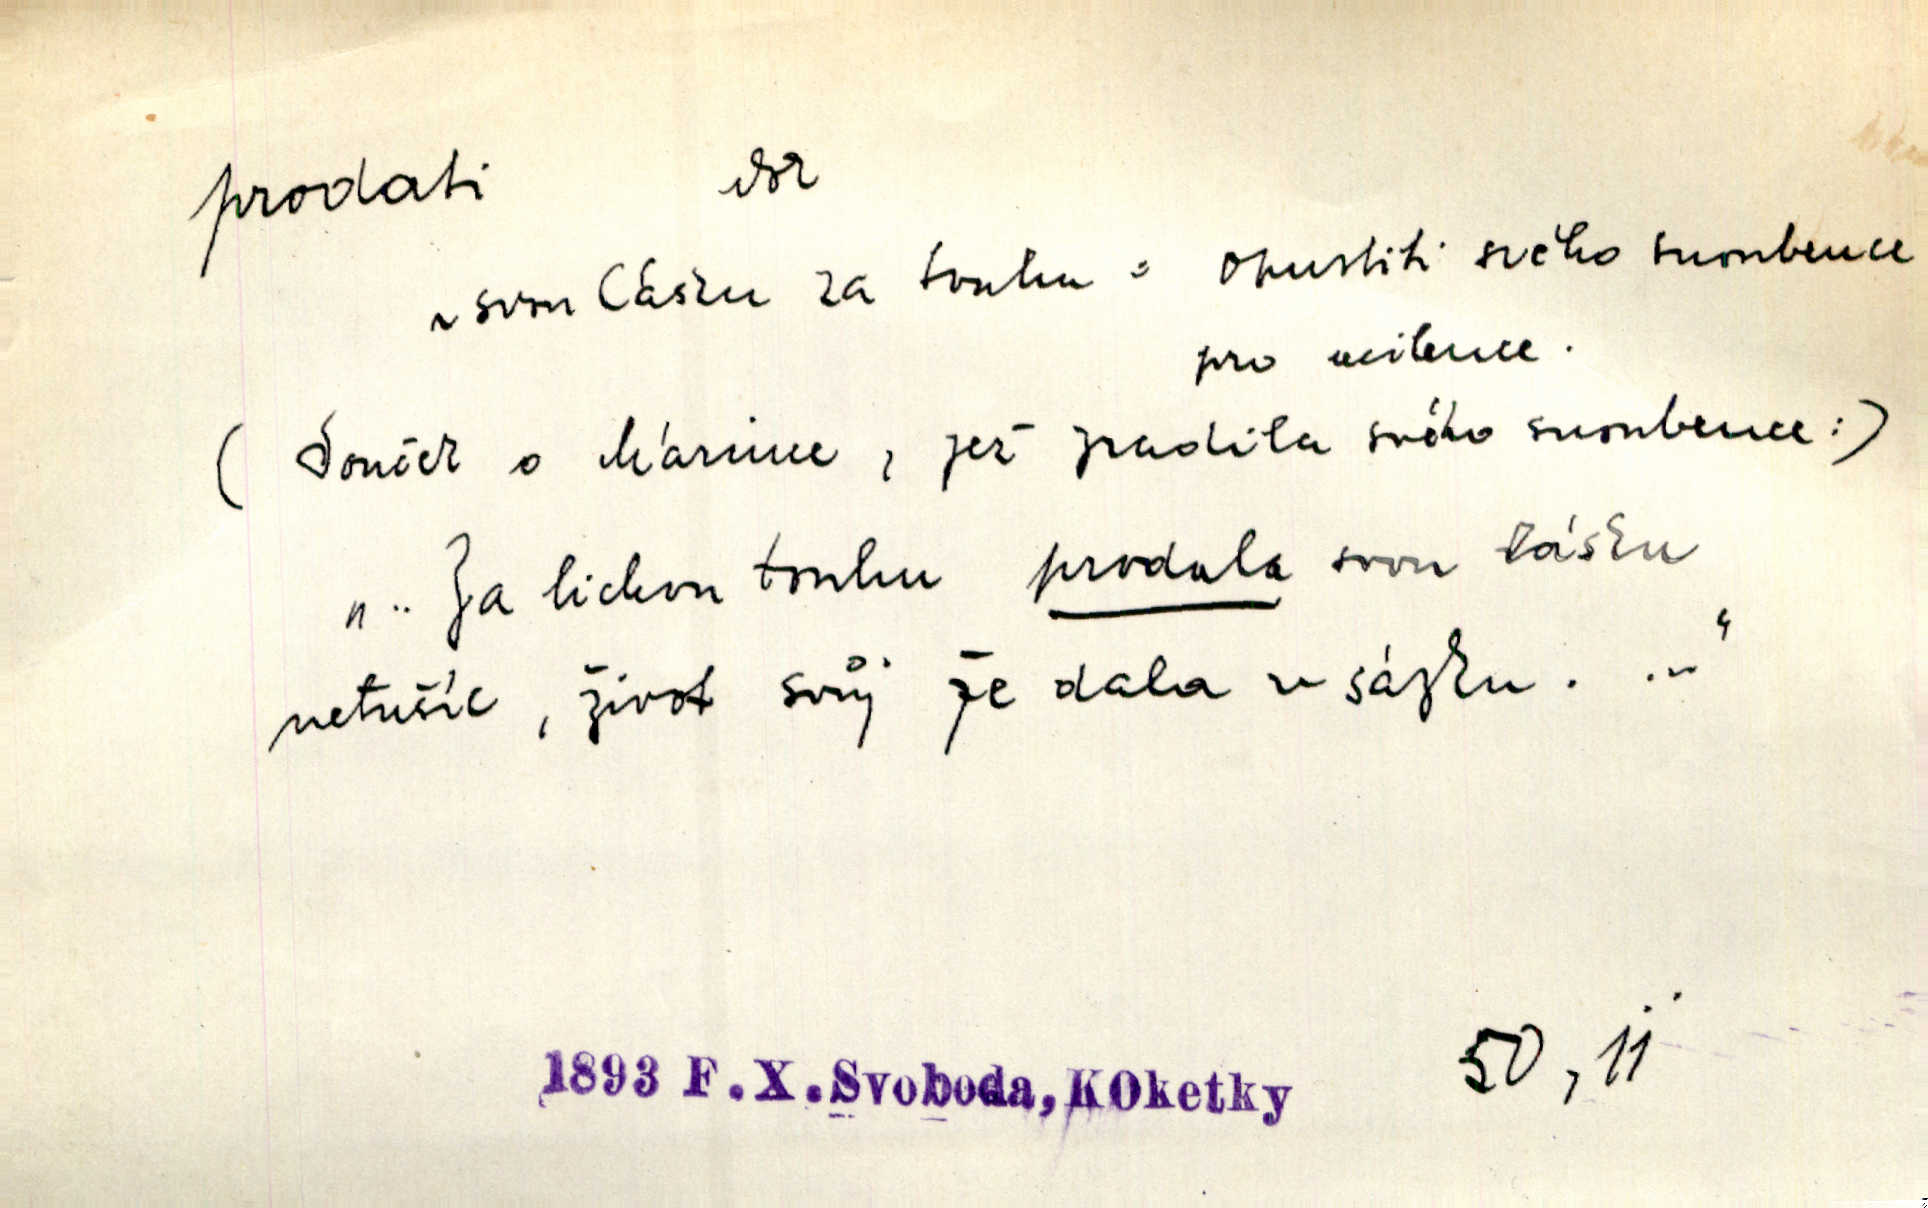 prodati
~ svou lásku za touhu = opustiti svého snoubence
pro milence.
( Souček o Mařince, jež zradila svého snoubence:)
„.. Za lichou touhu prodala svou lásku
netušíc, život svůj že dala v sázku. ..."
1893 F.X.Svoboda, KOketky 50, ii